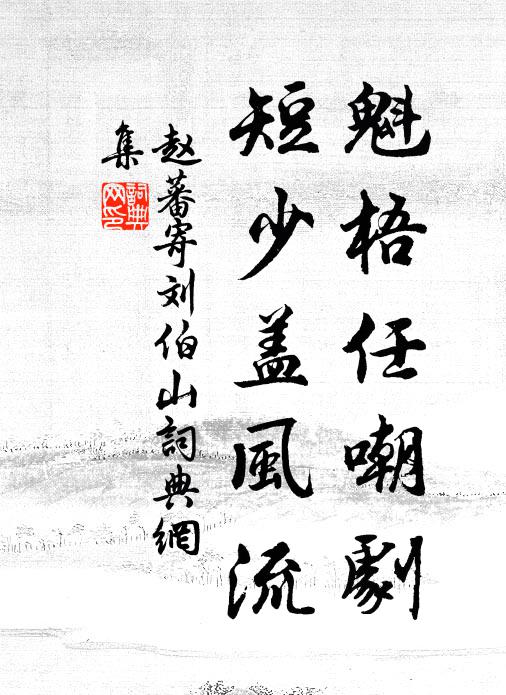 魁梧任嘲劇
短少盖風流
赵蕃寄刘伯山詞典網
集
詞典网印